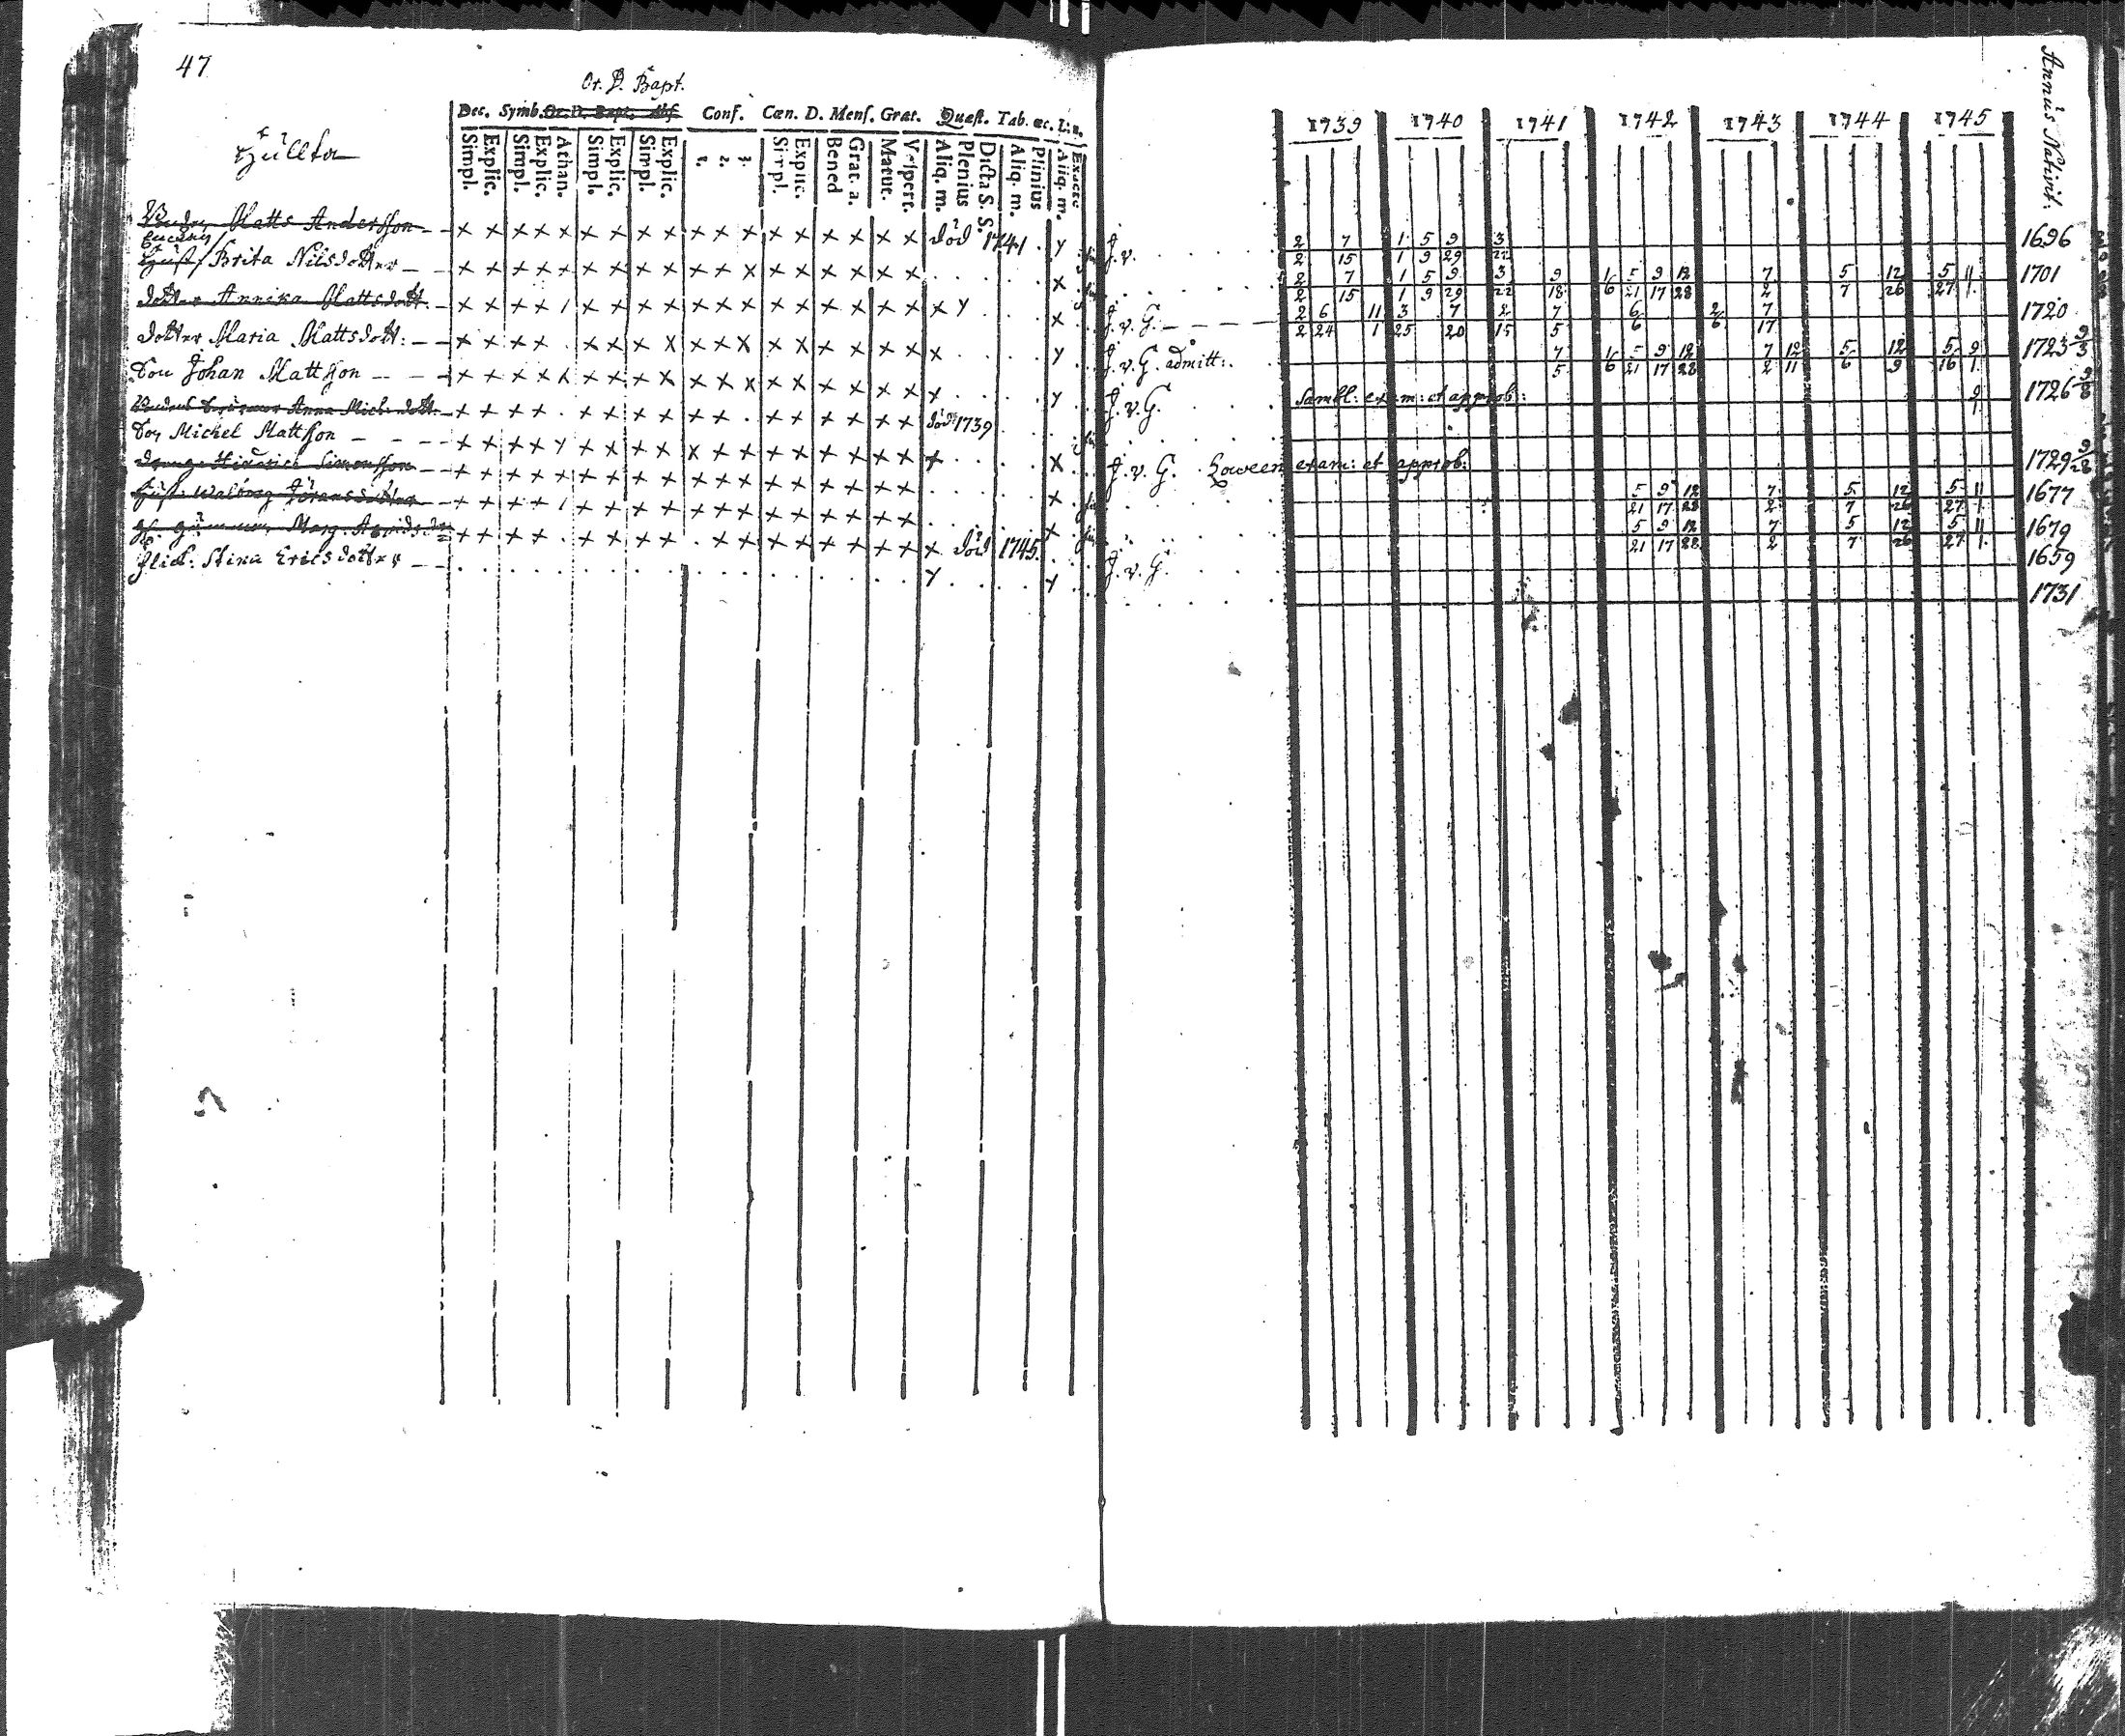 47
Or. D. Bapt.
Dec. Symb. Or. D. Bapt. Abs. Conf. Cœn. D. Mens. Grat. Quæst. Tab. œc.
Simpl. Explic. Simpl. Explic. Athan. Simpl. Explic. Simpl. Explic. 1. 2. 3. Simpl. Explic. Bened Grat. a. Matut. Vespert. Aliq. m. Plenius Dicta S. S. Aliq. m. Plinius Aliq. m. Exacte
Matts Andersson död 1741
Brita Nilsdotter
dotter Annika Mattsdott.
dotter Maria Mattsdott:
Son Johan Mattsson
Anna Mich: dott: död 1739
Son Michel Mattsson
Simonsson
Hust: Walborg Jöransdotter
Marg. död 1745.
flick: Stina Ericsdotter
Annus Nativit:
1739 1740 1741 1742 1743 1744 1745
J. v. 2 7 1 5 9 3 1696
2 15 1 9 29 22
2 7 1 5 9 3 9 1 5 9 12 7 5 12 5 11 1701
2 15 1 9 29 22 18 6 21 17 28 2 7 26 27 1
J. v. G. 2 6 11 3 7 2 7 6 2 7 1720
2 24 1 25 20 15 5 6 6 17
J. v. G. admitt: 7 1 5 9 12 7 12 5 12 5 9 1723 9/3
5 6 21 17 28 2 11 6 9 16 1
J. v. G. exam: et approb: 9 1726 9/8
1
J. v. G. exam: et approb: 1729 9/28
5 9 12 7 5 12 5 11 1677
21 17 28 2 7 26 27 1
5 9 12 7 5 12 5 11 1679
21 17 28 2 7 26 27 1
J. v. G. 1659
1731